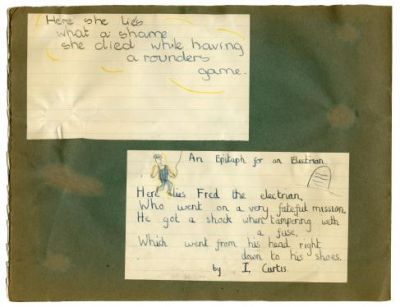 Here she lies
what a shame
she died while having
a rounders
game.
An Epitaph for an Electrian
Here lies Fred the electrian,
Who went on a very fateful mission,
He got a shock when tampering with
a fuse,
Which went from his head right
down to his shoes.
by I. Curtis.